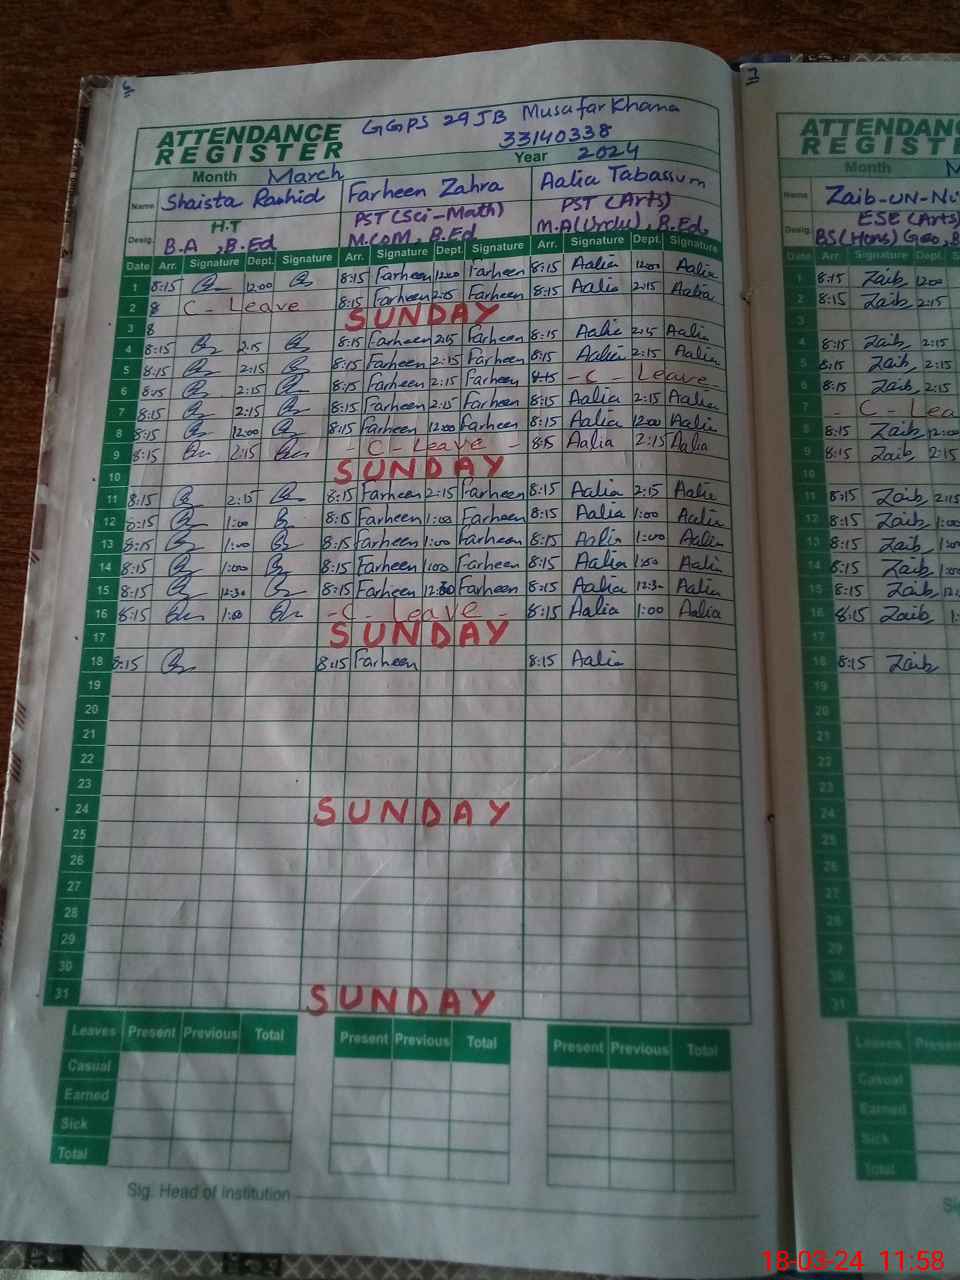 6
ATTENDANCE REGISTER GGPS 29JB Musafar Khana
33140338
Month March Year 2024
Name Shaista Rashid Farheen Zahra Aalia Tabassum
Desig. H.T PST (Sci-Math) PST (Arts)
B.A , B.Ed M.COM, B.Ed M.A(Urdu), B.Ed,
Date Arr. Signature Dept. Signature Arr. Signature Dept. Signature Arr. Signature Dept. Signature
1 8:15 12:00 8:15 Farheen 12:00 Farheen 8:15 Aalia 12:00 Aalia
2 8 C - Leave 8:15 Farheen 2:15 Farheen 8:15 Aalia 2:15 Aalia
3 8 SUNDAY
4 8:15 2:15 8:15 Farheen 2:15 Farheen 8:15 Aalia 2:15 Aalia
5 8:15 2:15 8:15 Farheen 2:15 Farheen 8:15 Aalia 2:15 Aalia
6 8:15 2:15 8:15 Farheen 2:15 Farheen 8:15 - C - Leave -
7 8:15 2:15 8:15 Farheen 2:15 Farheen 8:15 Aalia 2:15 Aalia
8 8:15 12:00 8:15 Farheen 12:00 Farheen 8:15 Aalia 12:00 Aalia
9 8:15 2:15 - C - Leave - 8:15 Aalia 2:15 Aalia
10 SUNDAY
11 8:15 2:15 8:15 Farheen 2:15 Farheen 8:15 Aalia 2:15 Aalia
12 8:15 1:00 8:15 Farheen 1:00 Farheen 8:15 Aalia 1:00 Aalia
13 8:15 1:00 8:15 Farheen 1:00 Farheen 8:15 Aalia 1:00 Aalia
14 8:15 1:00 8:15 Farheen 1:00 Farheen 8:15 Aalia Aalia
15 8:15 12:30 8:15 Farheen 12:30 Farheen 8:15 Aalia 12:30 Aalia
16 8:15 1:00 - C - Leave - 8:15 Aalia 1:00 Aalia
17 SUNDAY
18 8:15 8:15 Farheen 8:15 Aalia
19
20
21
22
23
24 SUNDAY
25
26
27
28
29
30
31 SUNDAY
Leaves Present Previous Total Present Previous Total Present Previous Total
Casual
Earned
Sick
Total
Sig. Head of Institution
7
ATTENDAN
REGISTE
Month M
Name Zaib-UN-Ni
Desig. ESE (Arts)
BS(Hons) Geo, B
Date Arr. Signature Dept. S
1 8:15 Zaib 12:00
2 8:15 Zaib 2:15
3
4 8:15 Zaib 2:15
5 8:15 Zaib 2:15
6 8:15 Zaib 2:15
7 - C - Lea
8 8:15 Zaib 12:00
9 8:15 Zaib 2:15
10
11 8:15 Zaib 2:15
12 8:15 Zaib 1:00
13 8:15 Zaib 1:00
14 8:15 Zaib 1:00
15 8:15 Zaib 12:
16 8:15 Zaib 1:
17
18 8:15 Zaib
19
20
21
22
23
24
25
26
27
28
29
30
31
Leaves Presen
Casual
Earned
Sick
Total
Si
18-03-24 11:58